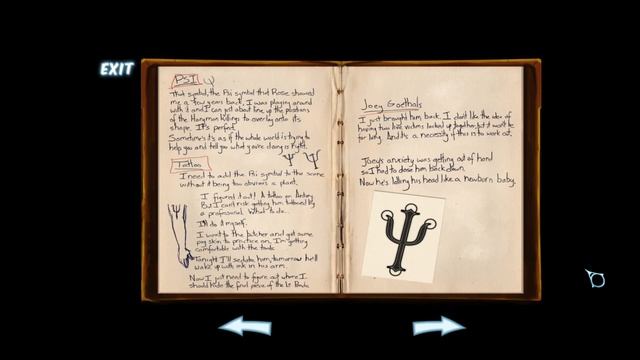 EXIT
PSI
That symbol, the Psi symbol that Rose showed
me a few years back, I was playing around
with it and I can just about line up the positions
of the Hangman killings to overlay onto its
shape. It's perfect.
Sometimes it's as if the whole world is trying to
help you and tell you what you're doing is right.
Tattoo
I need to add the Psi symbol to the scene
without it being too obvious a plant.
I figured it out! A tattoo on Antony
But I can't risk getting him tattooed by
a professional. What to do...
I'll do it myself.
I went to the butcher and got some
pig skin to practice on. I'm getting
comfortable with the tools
Tonight I'll sedate him, tomorrow he'll
wake up with ink in his arm.
Now I just need to figure out where I
should hide the final piece of the
Joey Goethals
I just brought him back. I don't like the idea of
having two live victims locked up together, but it won't be
for long. And it's a necessity if this is to work out.
Joey's anxiety was getting out of hand
so I had to dose him back down.
Now he's lolling his head like a newborn baby.